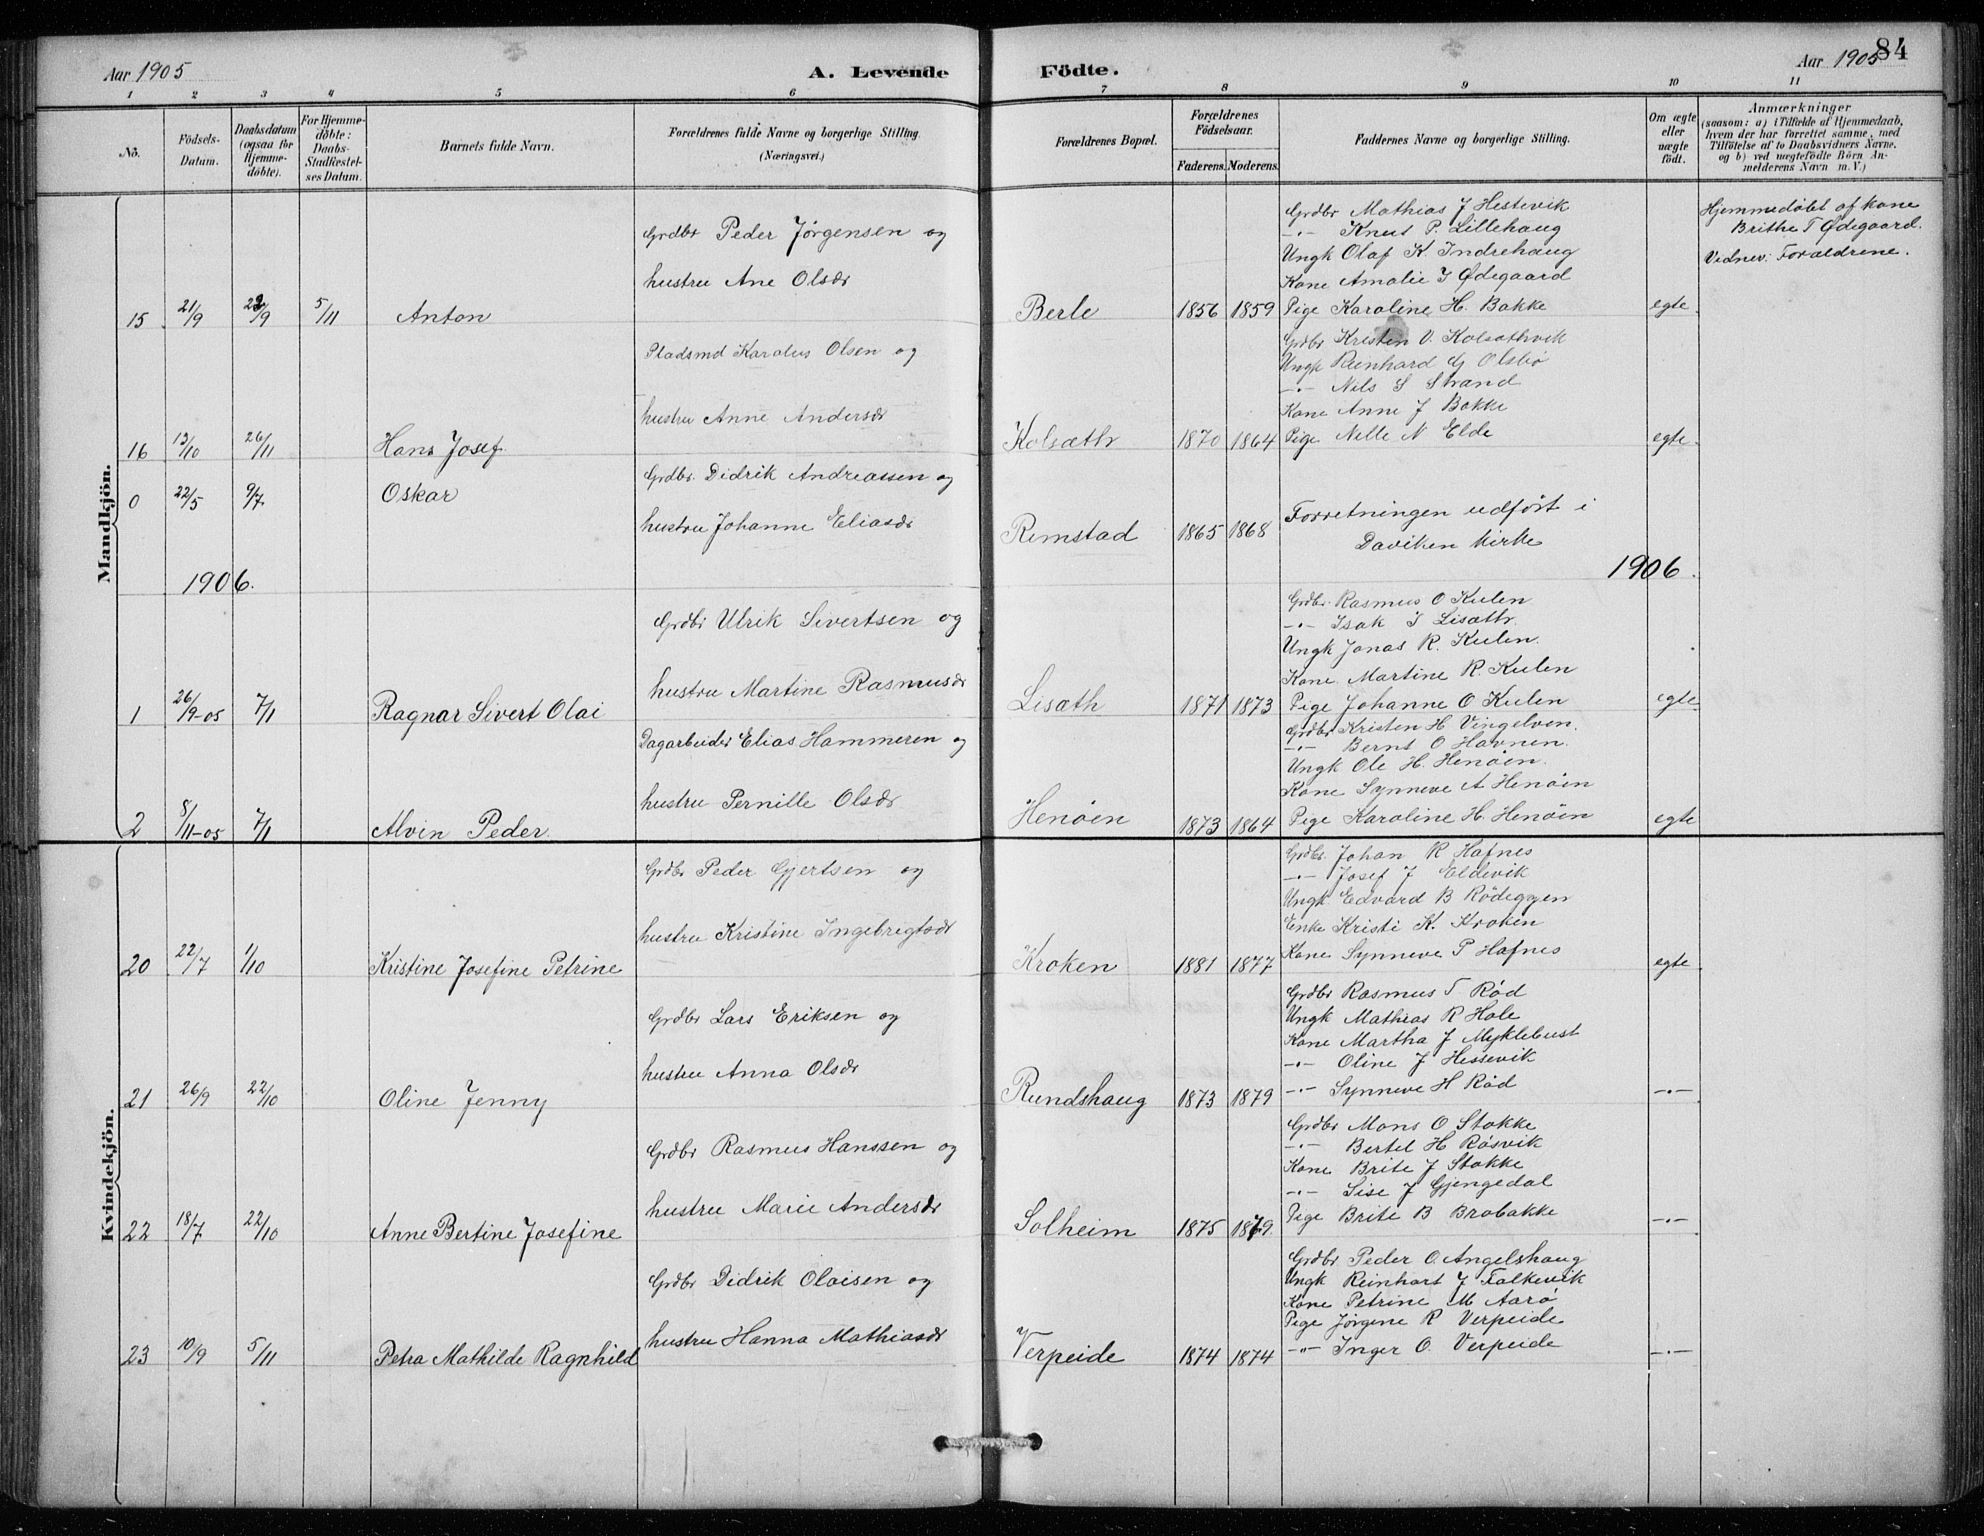 Aar 1905
A. Levende Födte.
Aar 1905
84
1 2 3 4 5 6 7 8 9 10 11
No.
Födsels-Datum.
Daabsdatum (ogsaa for Hjemme-döbte).
For Hjemme-döbte: Daabs-Stadfæstel-ses Datum.
Barnets fulde Navn.
Forældrenes fulde Navne og borgerlige Stilling. (Næringsvei.)
Forældrenes Bopæl.
Forældrenes Födselsaar.
Faderens. Moderens.
Faddernes Navne og borgerlige Stilling.
Om ægte eller uægte født.
Anmærkninger
(saasom: a) i Tilfælde af Hjemmedaab,
hvem der har forrettet samme, med
Tilföielse af to Daabsvidners Navne.
og b) ved uægtefödte Börn An-
melderens Navn m.V.)
Mandkjön.
15 21/9 23/9 5/11 Anton
Grdbr Peder Jörgensen og
hustru Ane Olsdr
Berle 1856 1859
Grdbr Mathias J Hestevik
-"- Knut P. Lillehaug
Ungk Olaf K Indrehaug
Kone Amalie J Ødegaard
Pige Karoline H. Bakke
egte
Hjemmedöbt af kone
Brithe T Ødegaard.
Vidner: Forældrene.
16 13/10 26/11 Hans Josef
Pladsmd Karolus Olsen og
hustru Anne Andersdr
Kolsæth 1870 1864
Grdbr Kristen V. Kolsæthvik
Ungk Reinhard G Olsbö
-"- Nils S Strand
Kone Anne J Bakke
Pige Nille N Elde
egte
0 22/5 9/7 Oskar
Grdbr. Didrik Andreassen og
hustru Johanne Eliasdr
Rimstad 1865 1868
Forretningen udfört i
Daviken kirke
1906. 1906.
1 26/9-05 7/1 Ragnar Sivert Olai
Grdbr Ulrik Sivertsen og
hustru Martine Rasmusdr
Lisæth 1871 1873
Grdbr. Rasmus O Kulen
-"- Isak I Lisæth.
Ungk Jonas R. Kulen.
Kone Martine R. Kulen
Pige Johanne O Kulen
egte
2 8/11-05 7/1 Alvin Peder
Dagarbeider Elias Hammeren og
hustru Pernille Olsdr
Henöen 1873 1864
Grdbr Kristen H Vingelven.
-"- Bernt O Havnen.
Ungk Ole H. Henöen.
Kone Synneve A Henöen
Pige Karoline H. Henöen
egte
Kvindekjön.
20 22/7 1/10 Kristine Josefine Petrine
Grdbr Peder Gjertsen og
hustru Kristine Ingebrigtsdr
Kroken 1881 1877
Grdbr. Johan R Hafnes
-"- Josef J Eldevik
Ungk Edvard B Rödeggen
Enke Kristi K. Kroken
Kone Synneve P Hafnes
egte
21 26/9 22/10 Oline Jenny
Grdbr Lars Eriksen og
hustru Anna Olsdr
Rundshaug 1873 1879
Grdbr Rasmus T. Rød
Ungk Mathias R Hole
Kone Martha J Myklebust
-"- Oline J Hessevik
-"- Synneve H Rød
-"-
22 18/7 22/10 Anne Bertine Josefine
Grdbr Rasmus Hanssen og
hustru Marie Andersdr
Solheim 1875 1879
Grdbr Mons O Stokke
-"- Bertel H Røsvik
Kone Brite J Stokke
-"- Sise J Gjengedal
Pige Brite B Brobakke
-"-
23 10/9 5/11 Petra Mathilde Ragnhild
Grdbr Didrik Olaisen og
hustru Hanna Mathiasdr
Verpeide 1874 1874
Grdbr Peder O. Angelshaug
Ungk Reinhart J Falkevik
Kone Petrine M Aarö
Pige Jörgine R Verpeide
-"- Inger O. Verpeide
-"-